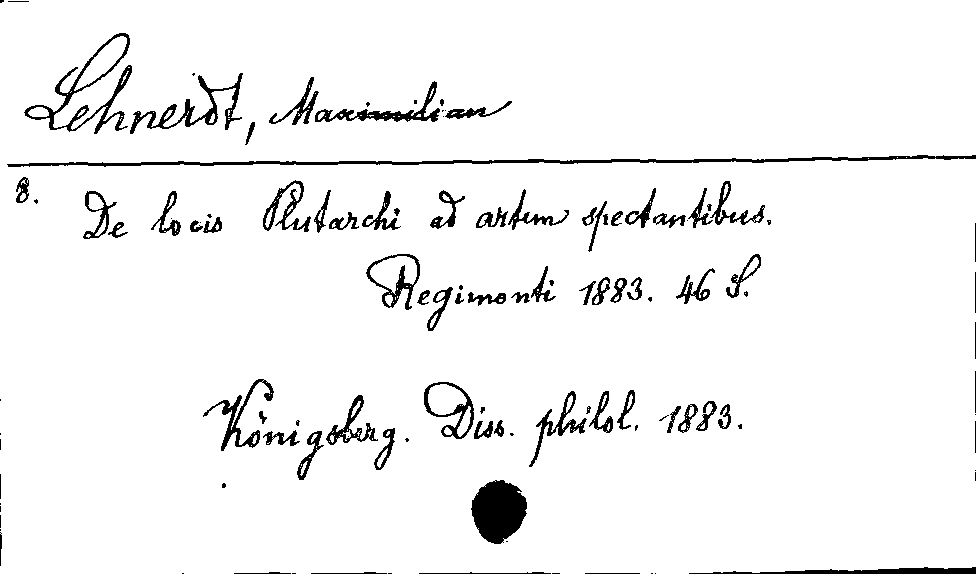 Lehnerdt, Maximilian
8.
De locis Plutarchi ad artem spectantibus.
Regimonti 1883. 46 S.
Königsberg. Diss. philol. 1883.